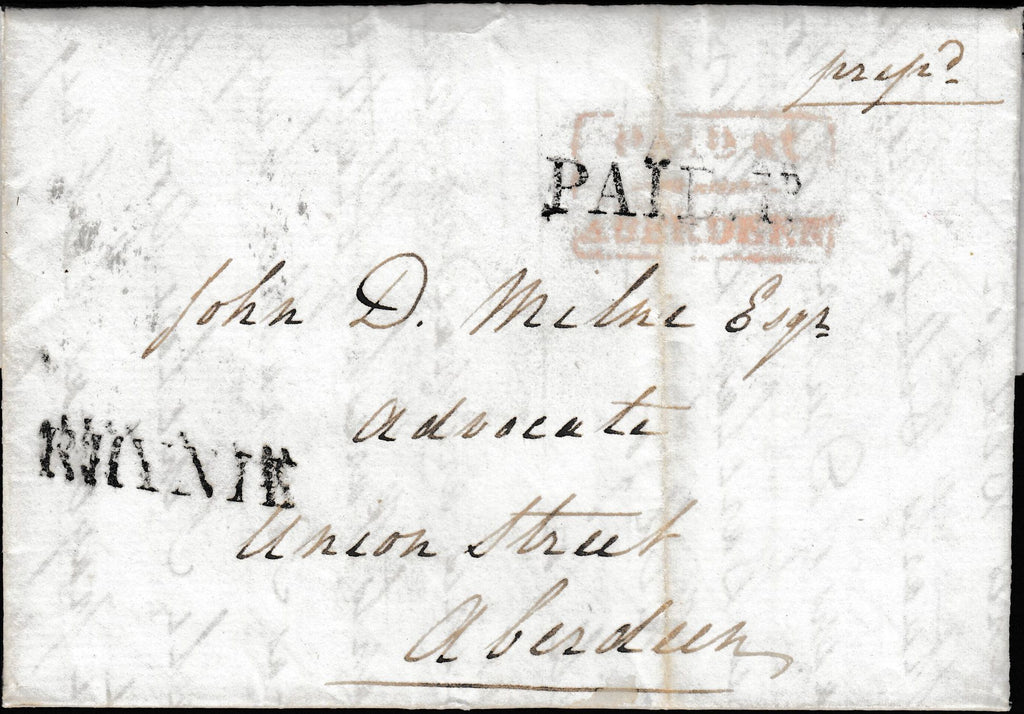 prepd
PAID AT
ABERDEEN
PAID.1D
John D. Milne Esqr
Advocate
RHYNIE
Union Street
Aberdeen